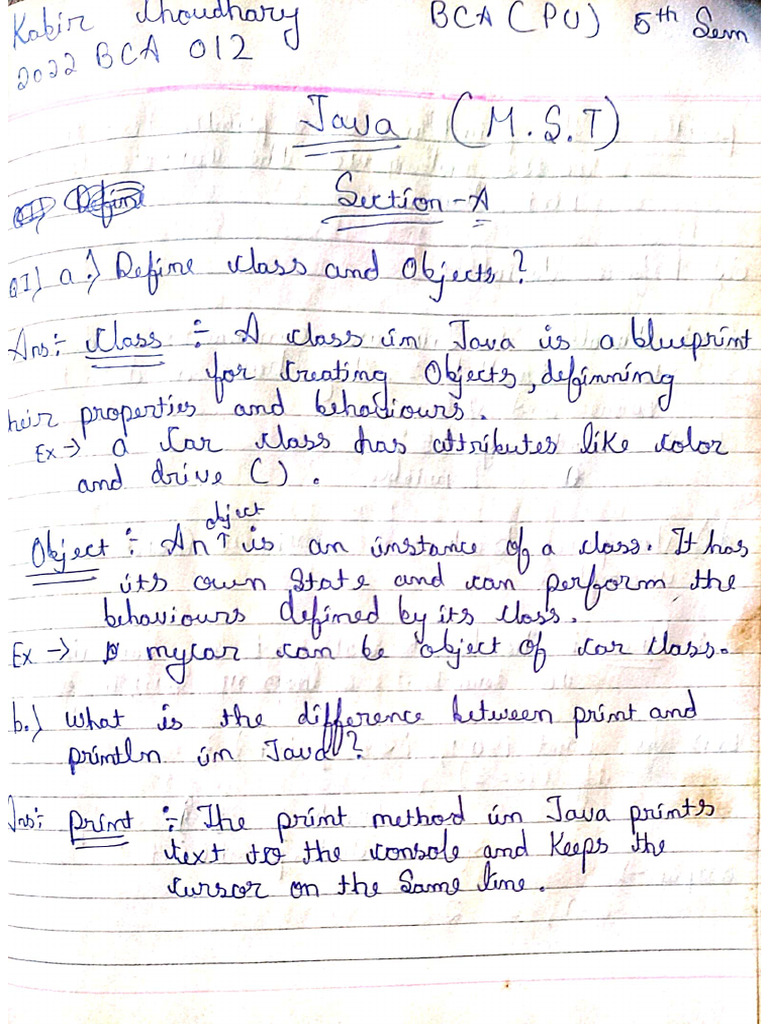 Kabir Choudhary BCA (PU) 5th Sem
2022 BCA 012
Java (M.S.T)
Section-A
Q1) a.) Define class and Objects?
Ans:- Class :- A class in Java is a blueprint
for creating Objects, definning
heir properties and behaviours.
Ex → a car class has attributes like color
and drive ().
Object :- An object is an instance of a class. It has
its own State and can perform the
behaviours defined by its class.
Ex → mycar can be object of car class.
b.) What is the difference between print and
println in Java?
Ans:- print :- The print method in Java prints
text to the console and Keeps the
cursor on the Same line.